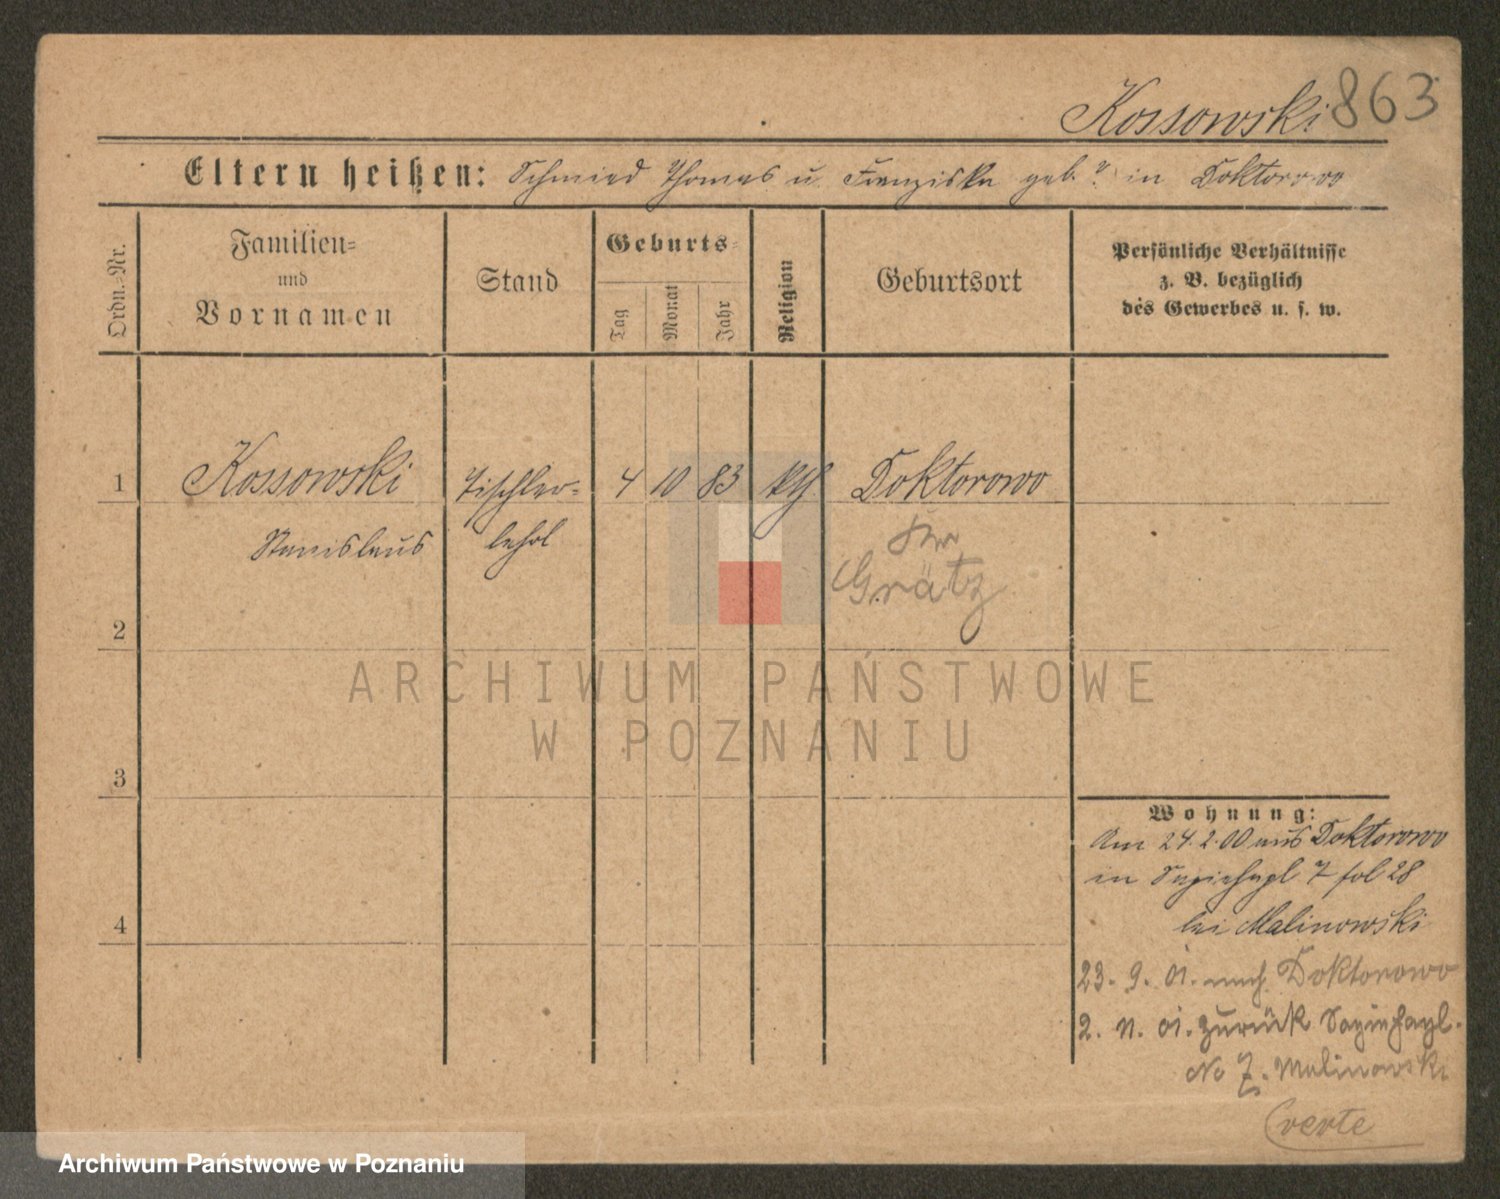 Kossowski 863
Eltern heißen: Schmied Thomas u. Franziska geb. ? in Doktorowo
Ordn.-Nr.
Familien-
und
Vornamen
Stand
Geburts-
Tag
Monat
Jahr
Religion
Geburtsort
Persönliche Verhältnisse
z. B. bezüglich
des Gewerbes u. s. w.
1 Kossowski Tischler- 4 10 83 kth Doktorowo
Stanislaus lehrl
Krs
Grätz
2
3
4
ARCHIWUM PAŃSTWOWE
W POZNANIU
Wohnung:
Am 24.2.00 aus Doktorowo
in Sapiehapl 7 fol 28
bei Malinowski
23. 9. 01. nach Doktorowo
2. 11. 01. zurück Sapiehapl.
No 7. Malinowski
verte
Archiwum Państwowe w Poznaniu